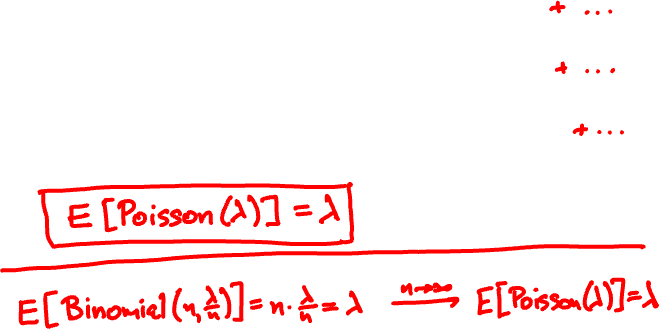 + ...
+ ...
+ ...
E[Poisson(λ)] = λ
E[Binomial(n, λ/n)] = n · λ/n = λ  n→∞ ⟶  E[Poisson(λ)] = λ